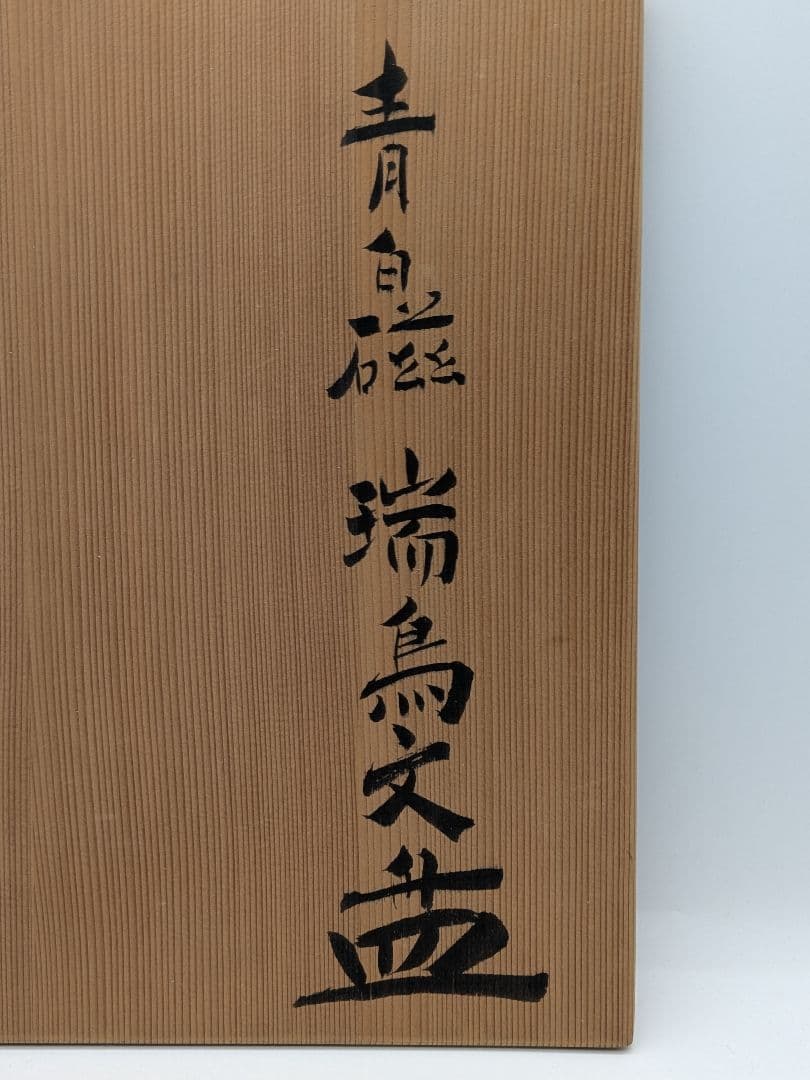 青白磁 瑞鳥文